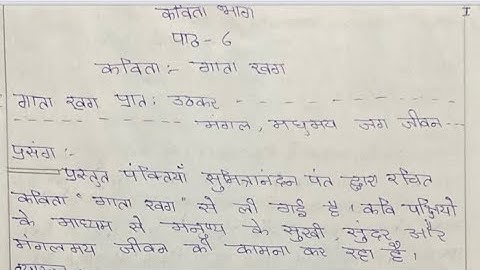 कविता भाग
I
पाठ - ६
कविता :- गाता खग
गाता खग प्रातः उठकर - - - - - - - - - - - -
- - - - - - - - - मंगल, मधुमय जग जीवन - - -
प्रसंग :-
प्रस्तुत पंक्तियाँ सुमित्रानंदन पंत द्वारा रचित
कविता "गाता खग" से ली गई है। कवि पक्षियो
के माध्यम से मनुष्य के सुखी, सुंदर और
मंगलमय जीवन की कामना कर रहा है।